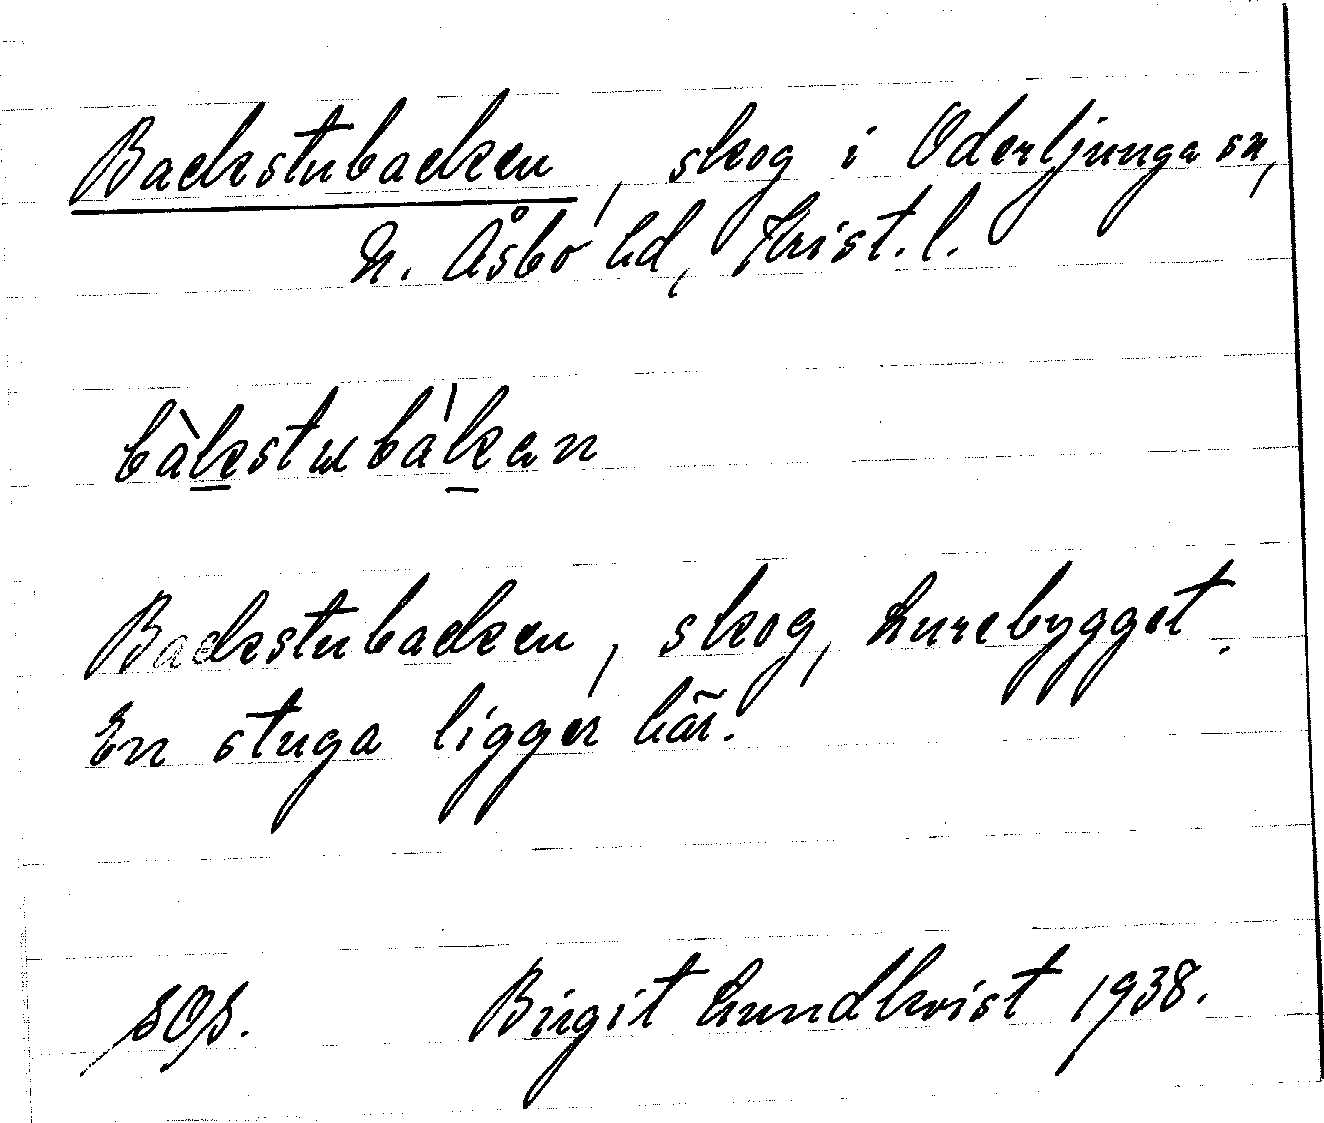 Backstubacken, skog i Oderljunga sn,
N. Åsbo hd, Krist. l.
bàkstubàkan
Backstubacken, skog, Lurebygget.
En stuga ligger här.
SOS. Birgit Lundkvist 1938.